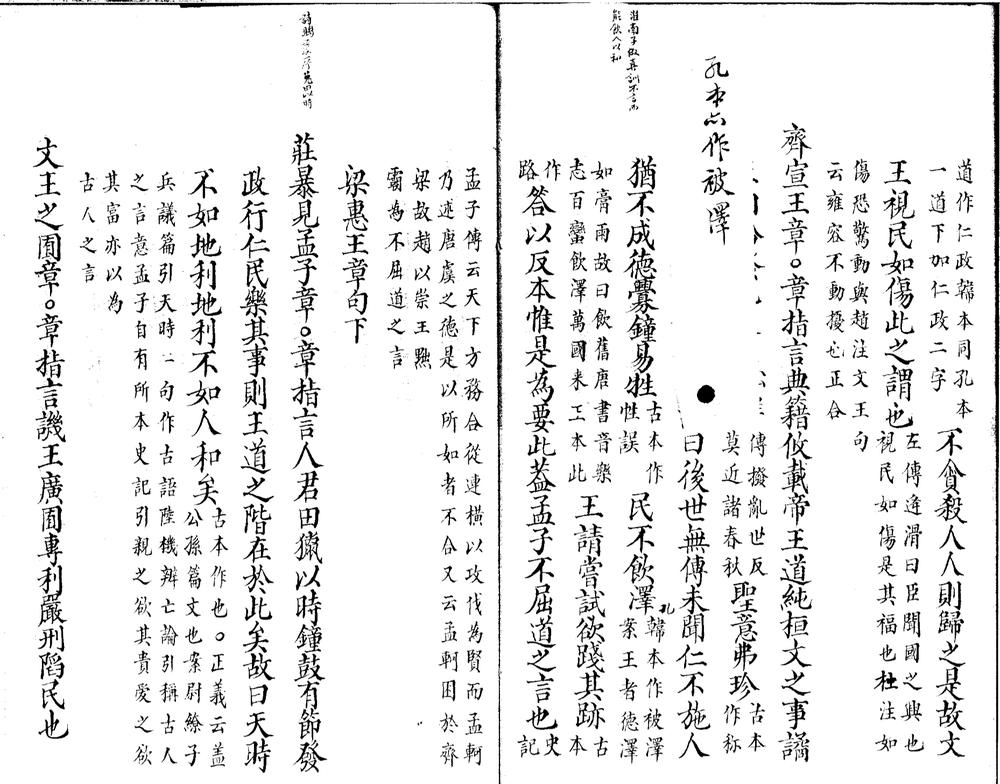 淮南子俶真訓不言而
能飲人以和
孔本亦作被澤
道作仁政韓本同孔本
一道下加仁政二字
不貪殺人人則歸之是故文
王視民如傷此之謂也
左傳逢滑曰臣聞國之興也
視民如傷是其福也杜注如
傷恐驚動與趙注文王句
云雍容不動擾也正合
齊宣王章○章指言典籍攸載帝王道純桓文之事譎
傳撥亂世反
莫近諸春秋
聖意弗珍
古本
作称
曰後世無傳未聞仁不施人
猶不成德釁鐘易牲
古本作
性誤
民不飲澤
孔韓本作被澤
案王者德澤
如膏雨故曰飲舊唐書音樂
志百蠻飲澤萬國来王本此
王請嘗試欲踐其跡
古
本
作
路
答以反本惟是為要此蓋孟子不屈道之言也
史
記
孟子傳云天下方務合從連橫以攻伐為賢而孟軻
乃述唐虞之德是以所如者不合又云孟軻困於齊
梁故趙以崇王黜
霸為不屈道之言
梁惠王章句下
莊暴見孟子章○章指言人君田獵以時鐘鼓有節發
政行仁民樂其事則王道之階在於此矣故曰天時
不如地利地利不如人和矣
古本作也○正義云蓋
公孫篇文也案尉繚子
兵議篇引天時二句作古語陸機辨亡論引稱古人
之言意孟子自有所本史記引親之欲其貴愛之欲
其富亦以為
古人之言
文王之囿章○章指言譏王廣囿專利嚴刑陷民也